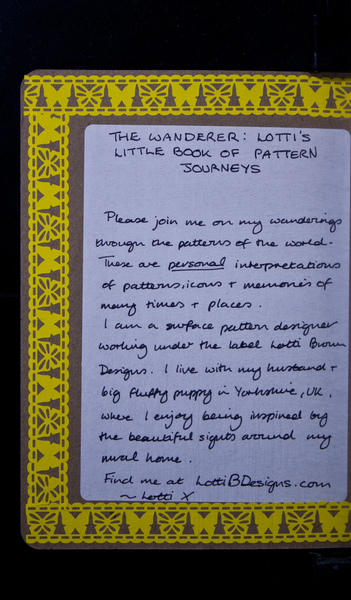 THE WANDERER: LOTTI'S
LITTLE BOOK OF PATTERN
JOURNEYS
Please join me on my wanderings
through the patterns of the world.
These are personal interpretations
of patterns, icons + memories of
many times + places.
I am a surface pattern designer
working under the label Lotti Brown
Designs. I live with my husband +
big fluffy puppy in Yorkshire, UK,
where I enjoy being inspired by
the beautiful sights around my
rural home.
Find me at LottiBDesigns.com
~ Lotti X